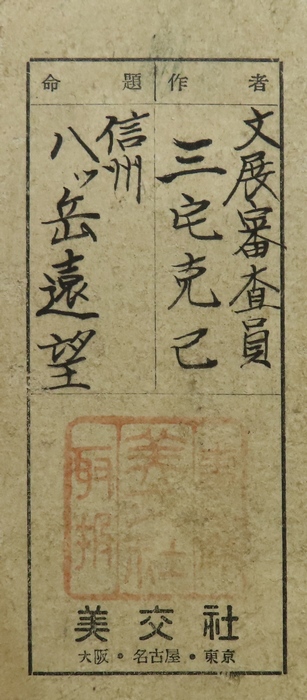 作者
文展審査員
三宅克己
命題
信州
八ッ岳遠望
美交社
大阪・名古屋・東京